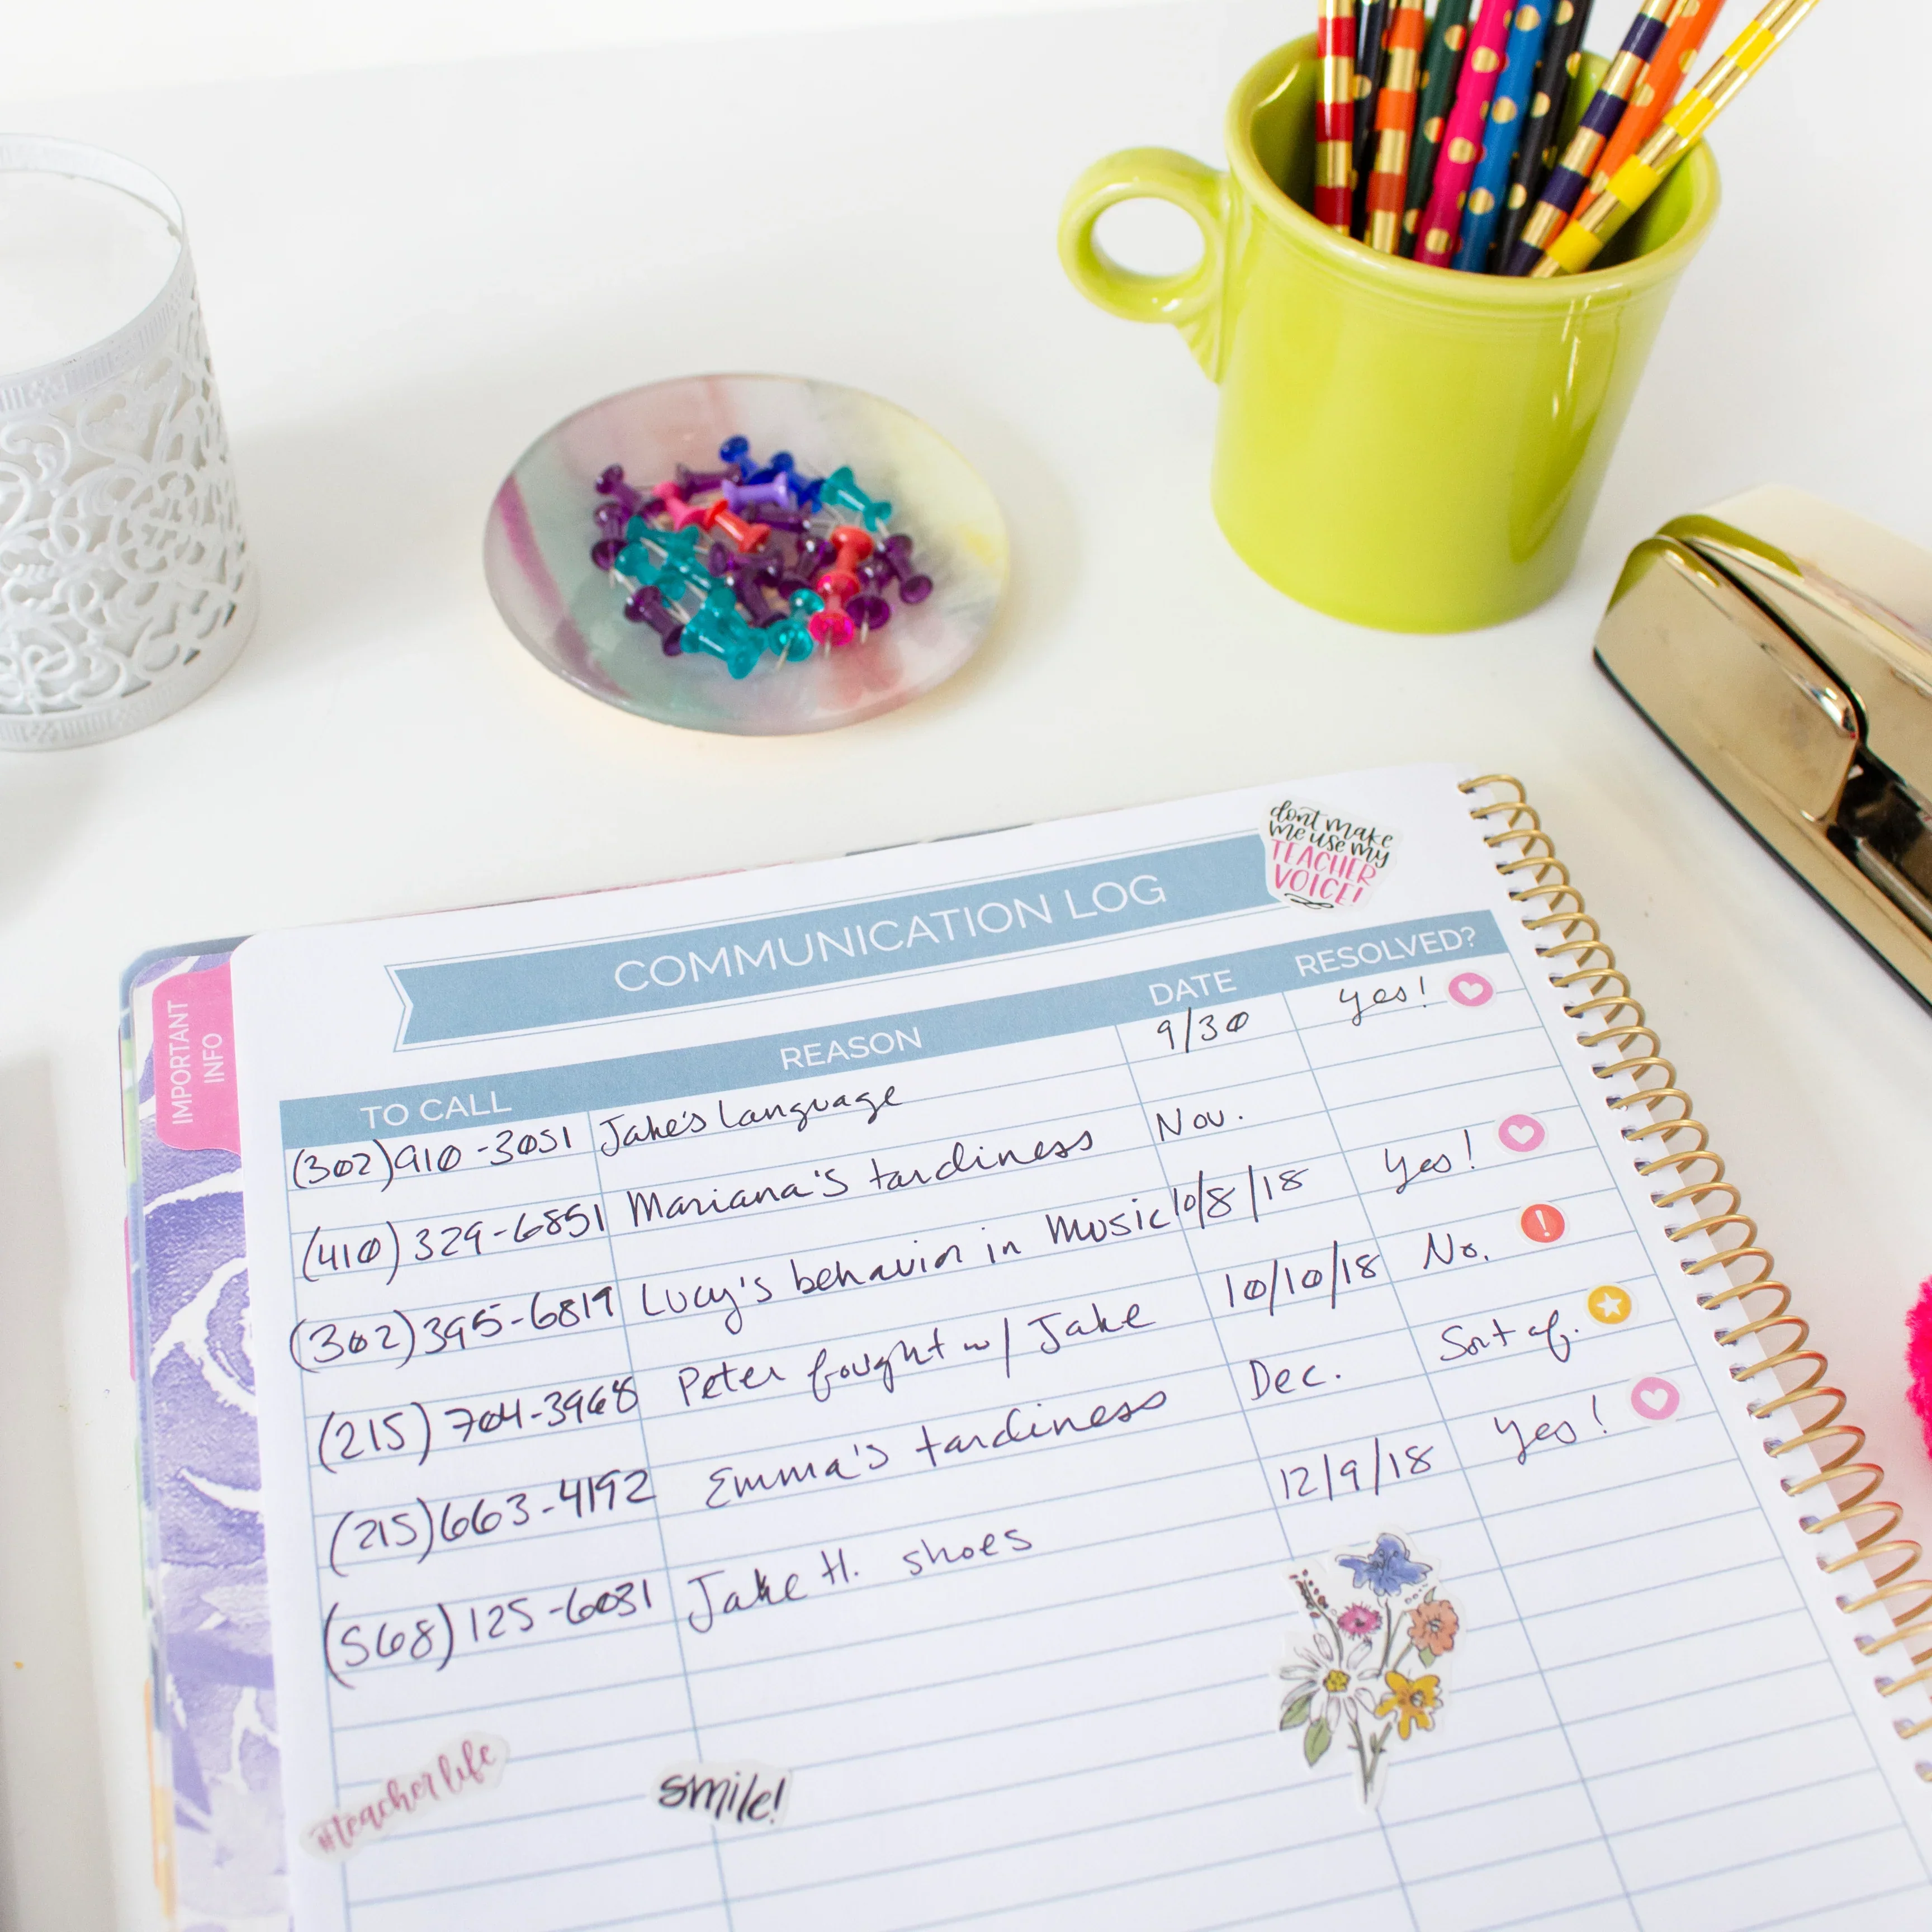 dont make
me use my
TEACHER
VOICE!
COMMUNICATION LOG
IMPORTANT
INFO
TO CALL REASON DATE RESOLVED?
(302)910-3051 Jake's language 9/30 Yes!
(410)329-6851 Mariana's tardiness Nov.
(302)395-6819 Lucy's behavior in Music 10/8/18 Yes!
(215)704-3968 Peter fought w/ Jake 10/10/18 No.
(215)663-4192 Emma's tardiness Dec. Sort of.
(568)125-6031 Jake H. shoes 12/9/18 Yes!
#teacherlife
smile!